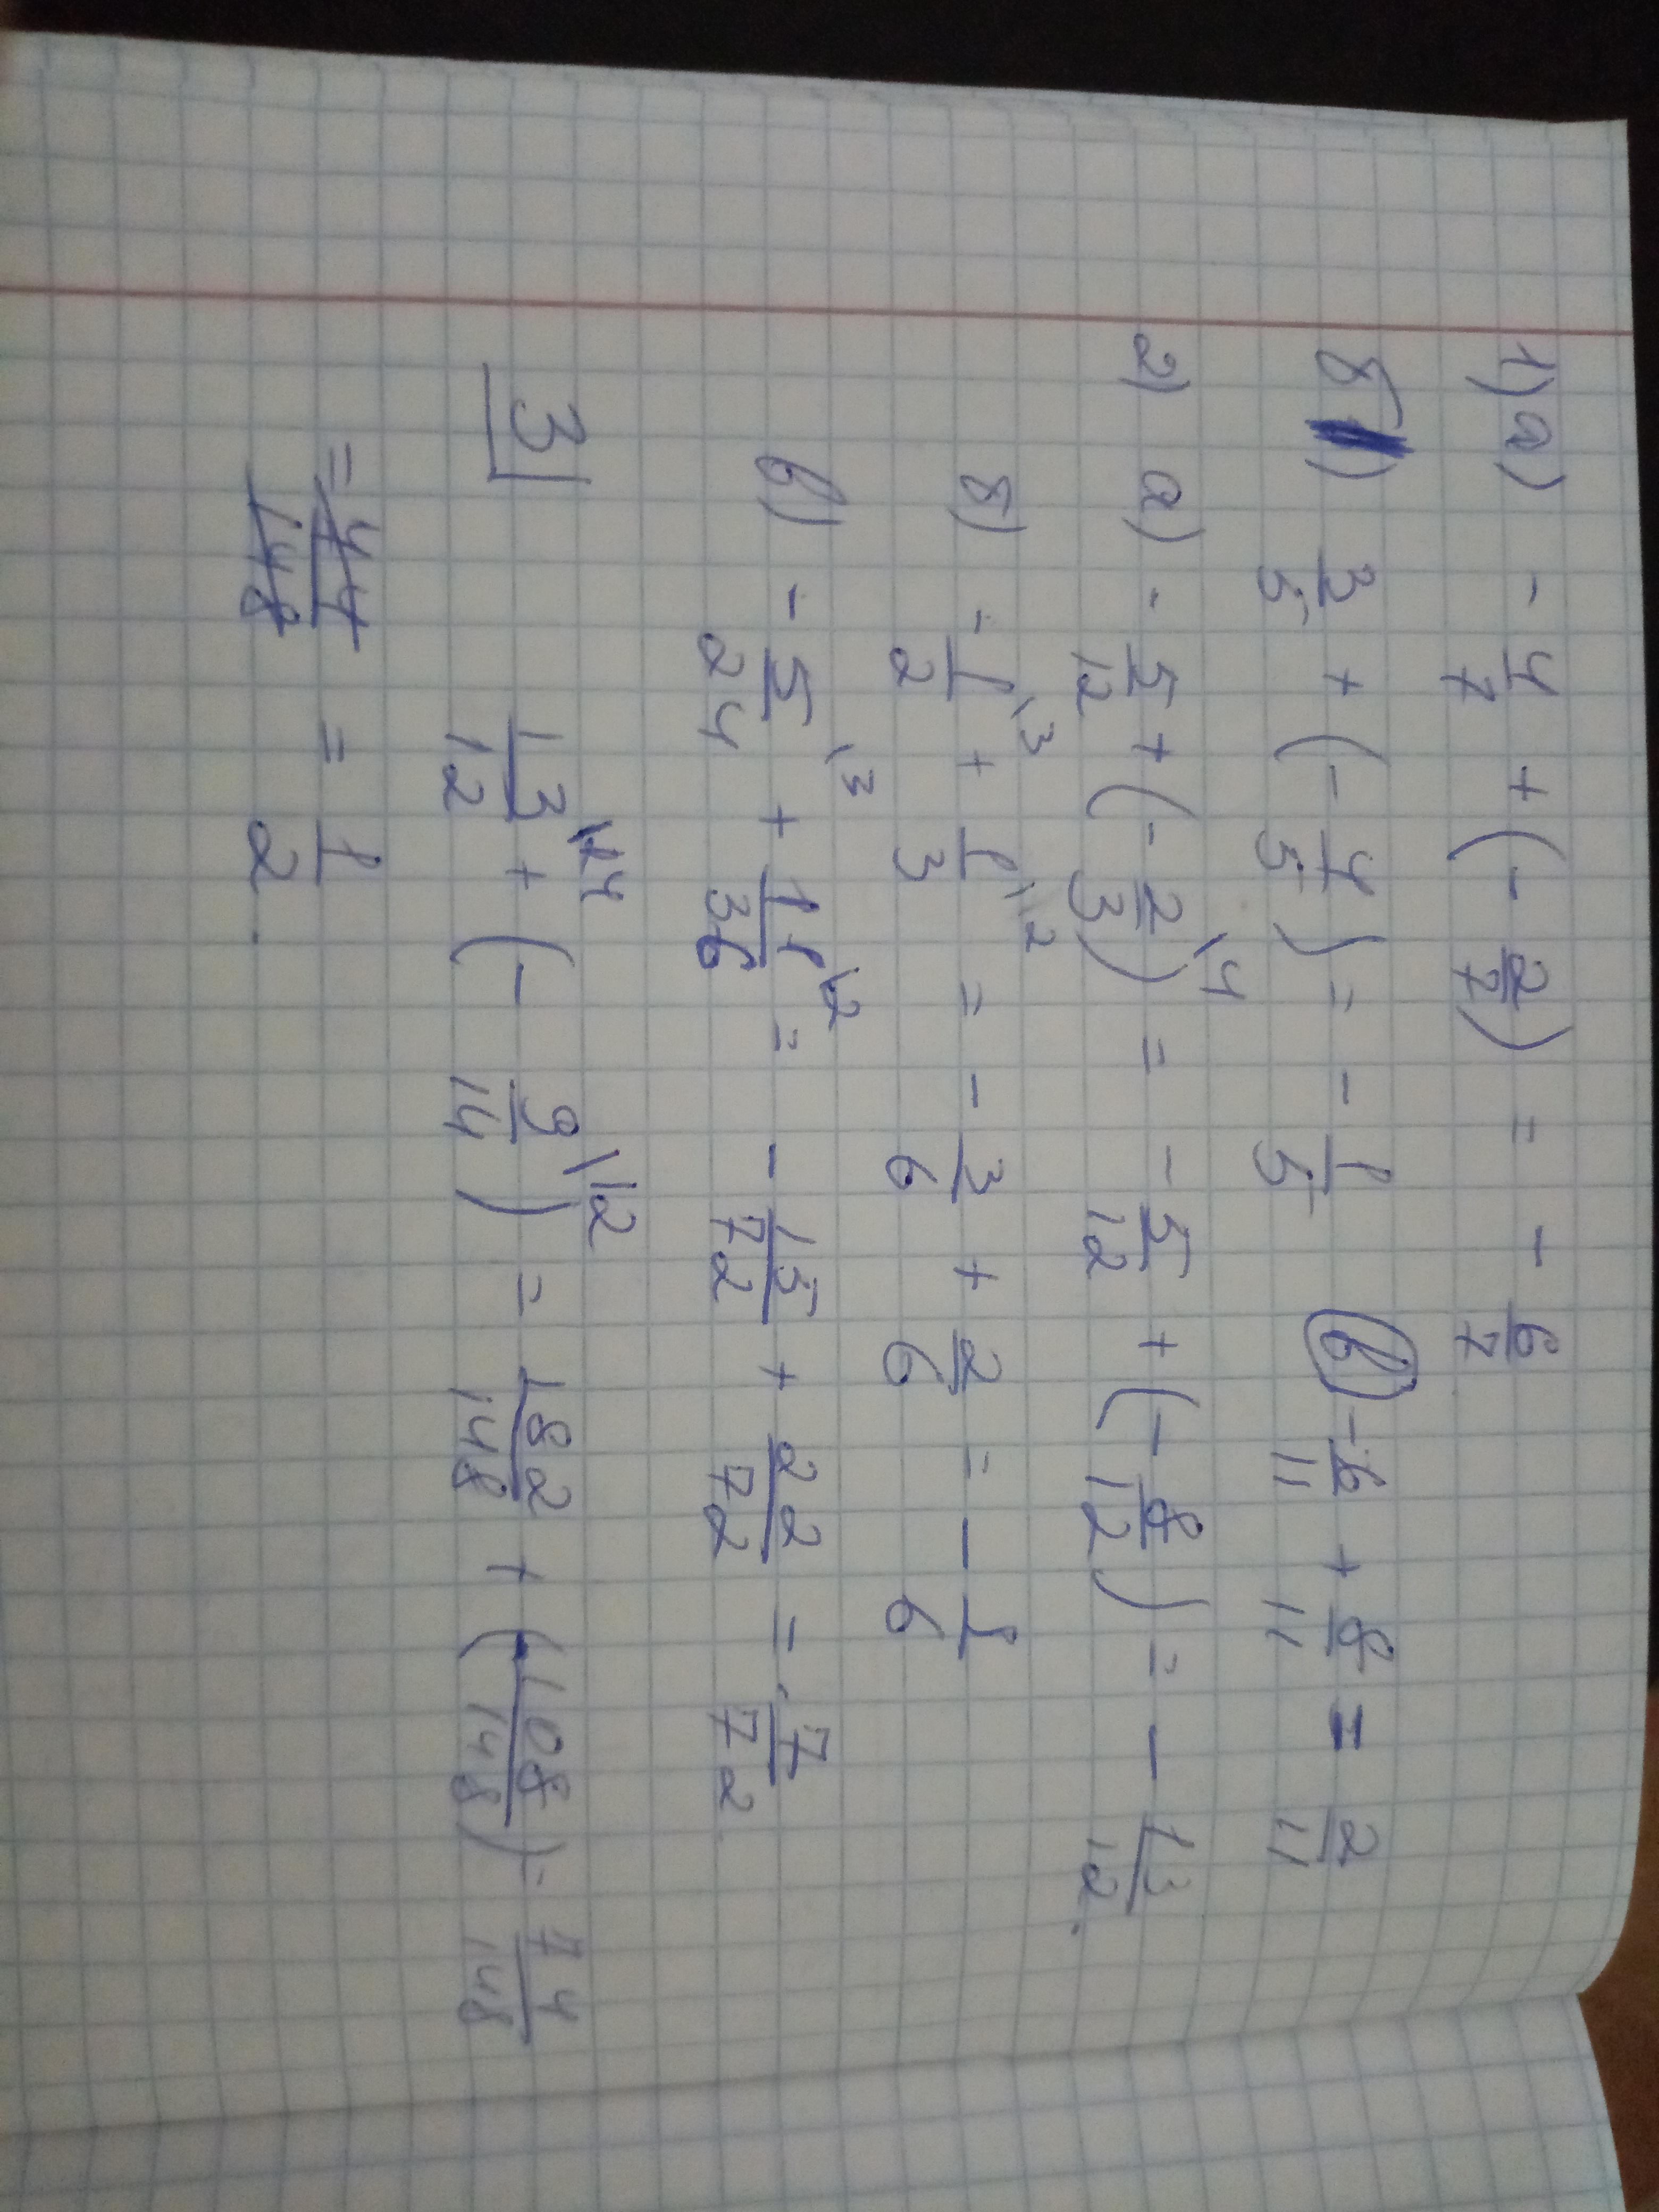 1) а) - 4/7 + (- 2/7) = - 6/7
б) 3/5 + (- 4/5) = - 1/5 в) - 6/11 + 8/11 = 2/11
2) а) - 5/12 + (- 2/3\4) = - 5/12 + (- 8/12) = - 13/12.
б) - 1/2\3 + 1/3\2 = - 3/6 + 2/6 = - 1/6
в) - 5/24\3 + 11/36\2 = - 15/72 + 22/72 = 7/72
3 13/12\14 + (- 9/14\12) = 182/148 + (- 108/148) = 74/148
= 1/2.